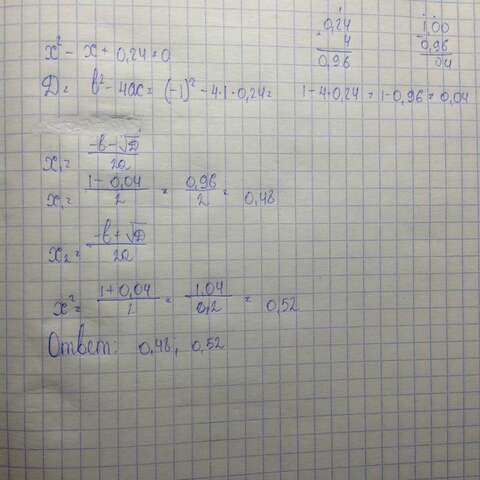 x² - x + 0,24 = 0
D = b² - 4ac = (-1)² - 4·1·0,24 = 1 - 4·0,24 = 1 - 0,96 = 0,04
0,24
4
0,96
1,00
0,96
04
x₁ = (-b - √D)/2a
x₁ = (1 - 0,04)/2 = 0,96/2 = 0,48
x₂ = (-b + √D)/2a
x₂ = (1 + 0,04)/2 = 1,04/0,2 = 0,52
Ответ: 0,48, 0,52